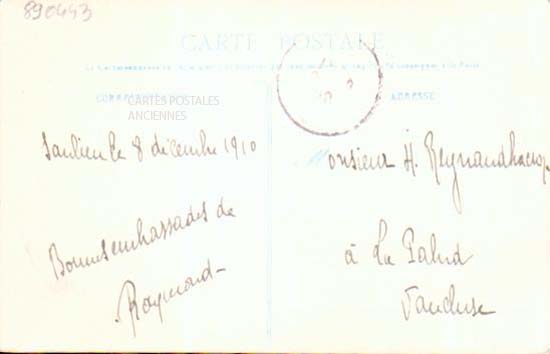 890443
CARTE POSTALE
CORRESPONDANCE
CARTES POSTALES
ANCIENNES
ADRESSE
Saulieu le 8 décembre 1910
Bonnes embrassades de
Raymond
Monsieur H.
à La Palud
Vaucluse